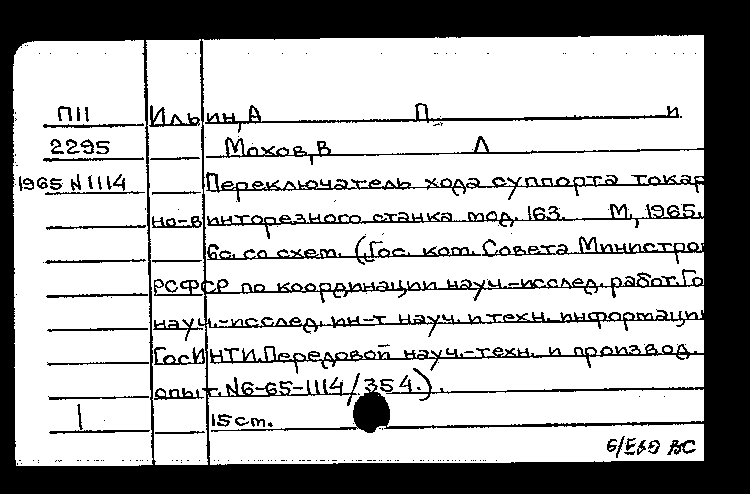 П11 Ильин, А П. и
2295 Мохов, В Л
1965 N1114 Переключатель хода суппорта токар
но-винторезного станка мод. 163. М, 1965.
6с. со схем. (Гос. ком. Совета Министро
РСФСР по координации науч.-исслед. работ. Го
науч.-исслед. ин-т науч. и техн. информации
ГосИНТИ. Передовой науч.-техн. и производ.
опыт. N6-65-1114/354.).
1 15 ст.